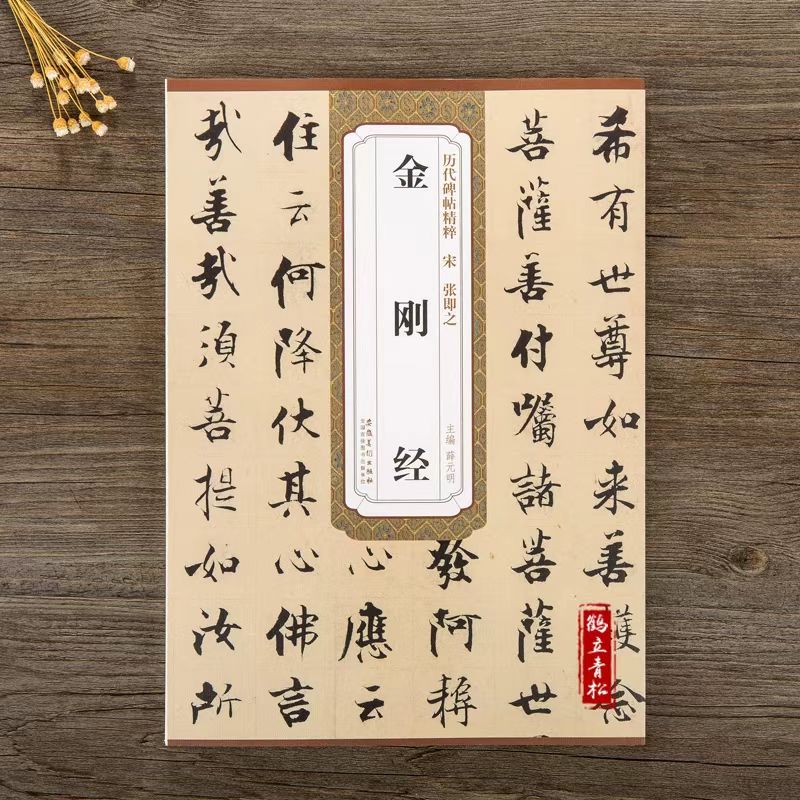 希有世尊如来善護念
菩薩善付囑諸菩薩世
历代碑帖精粹 宋 张即之
主编 薛元明
金刚经
安徽美术出版社
全国百佳图书出版单位
發阿耨
心應云
住云何降伏其心佛言
哉善哉須菩提如汝所
鹤立青松